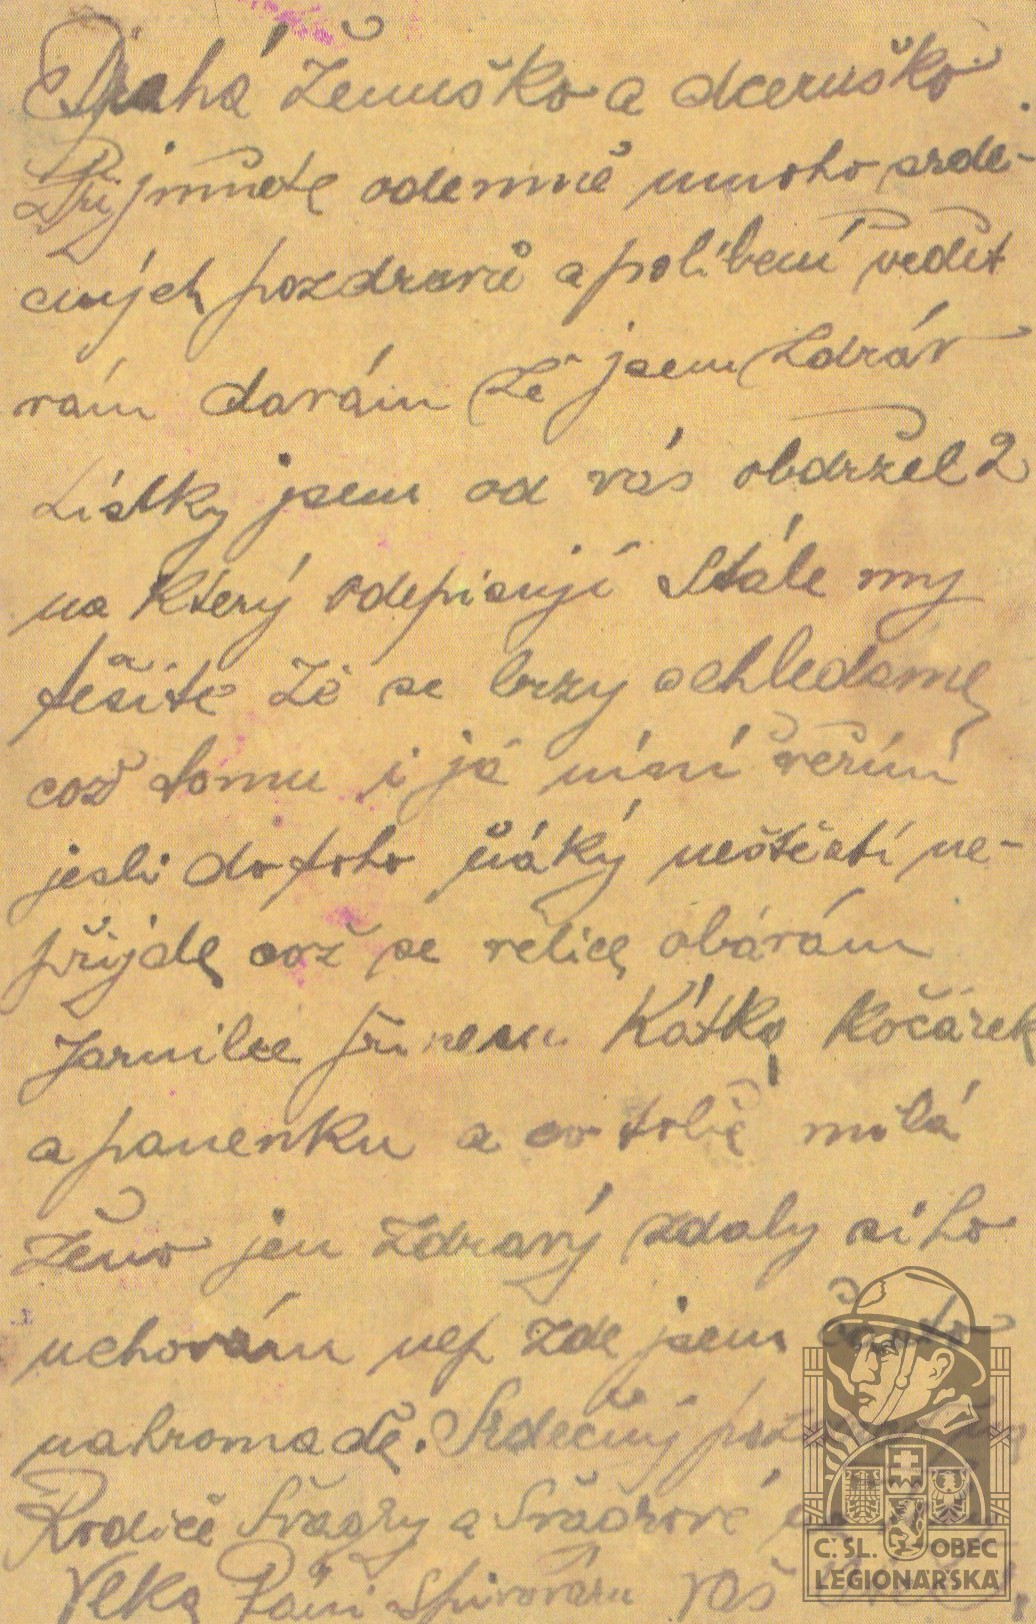 Drahá Ženuško a dceruško.
Přijmněte odemně mnoho srde-
čných pozdravů a políbení vedit
vám davám že jsem zdráv
Lístky jsem od vás obdržel 2
na který odepisují Stále my
těšite že se brzy schledame
což tomu i já níní věřím
jesli do toho ňáký neštěstí ne-
přijde což se velice obávám
Jarmilce Kátko Kočárek
a panenku a co tobě milá
ženo jen zdravý zdaly si ho
uchovám nep zde jsem
nahromadě. Srdečný
Rodiče Švagry a Švagrové
Páni váš
Č. SL. OBEC
LEGIONÁŘSKÁ